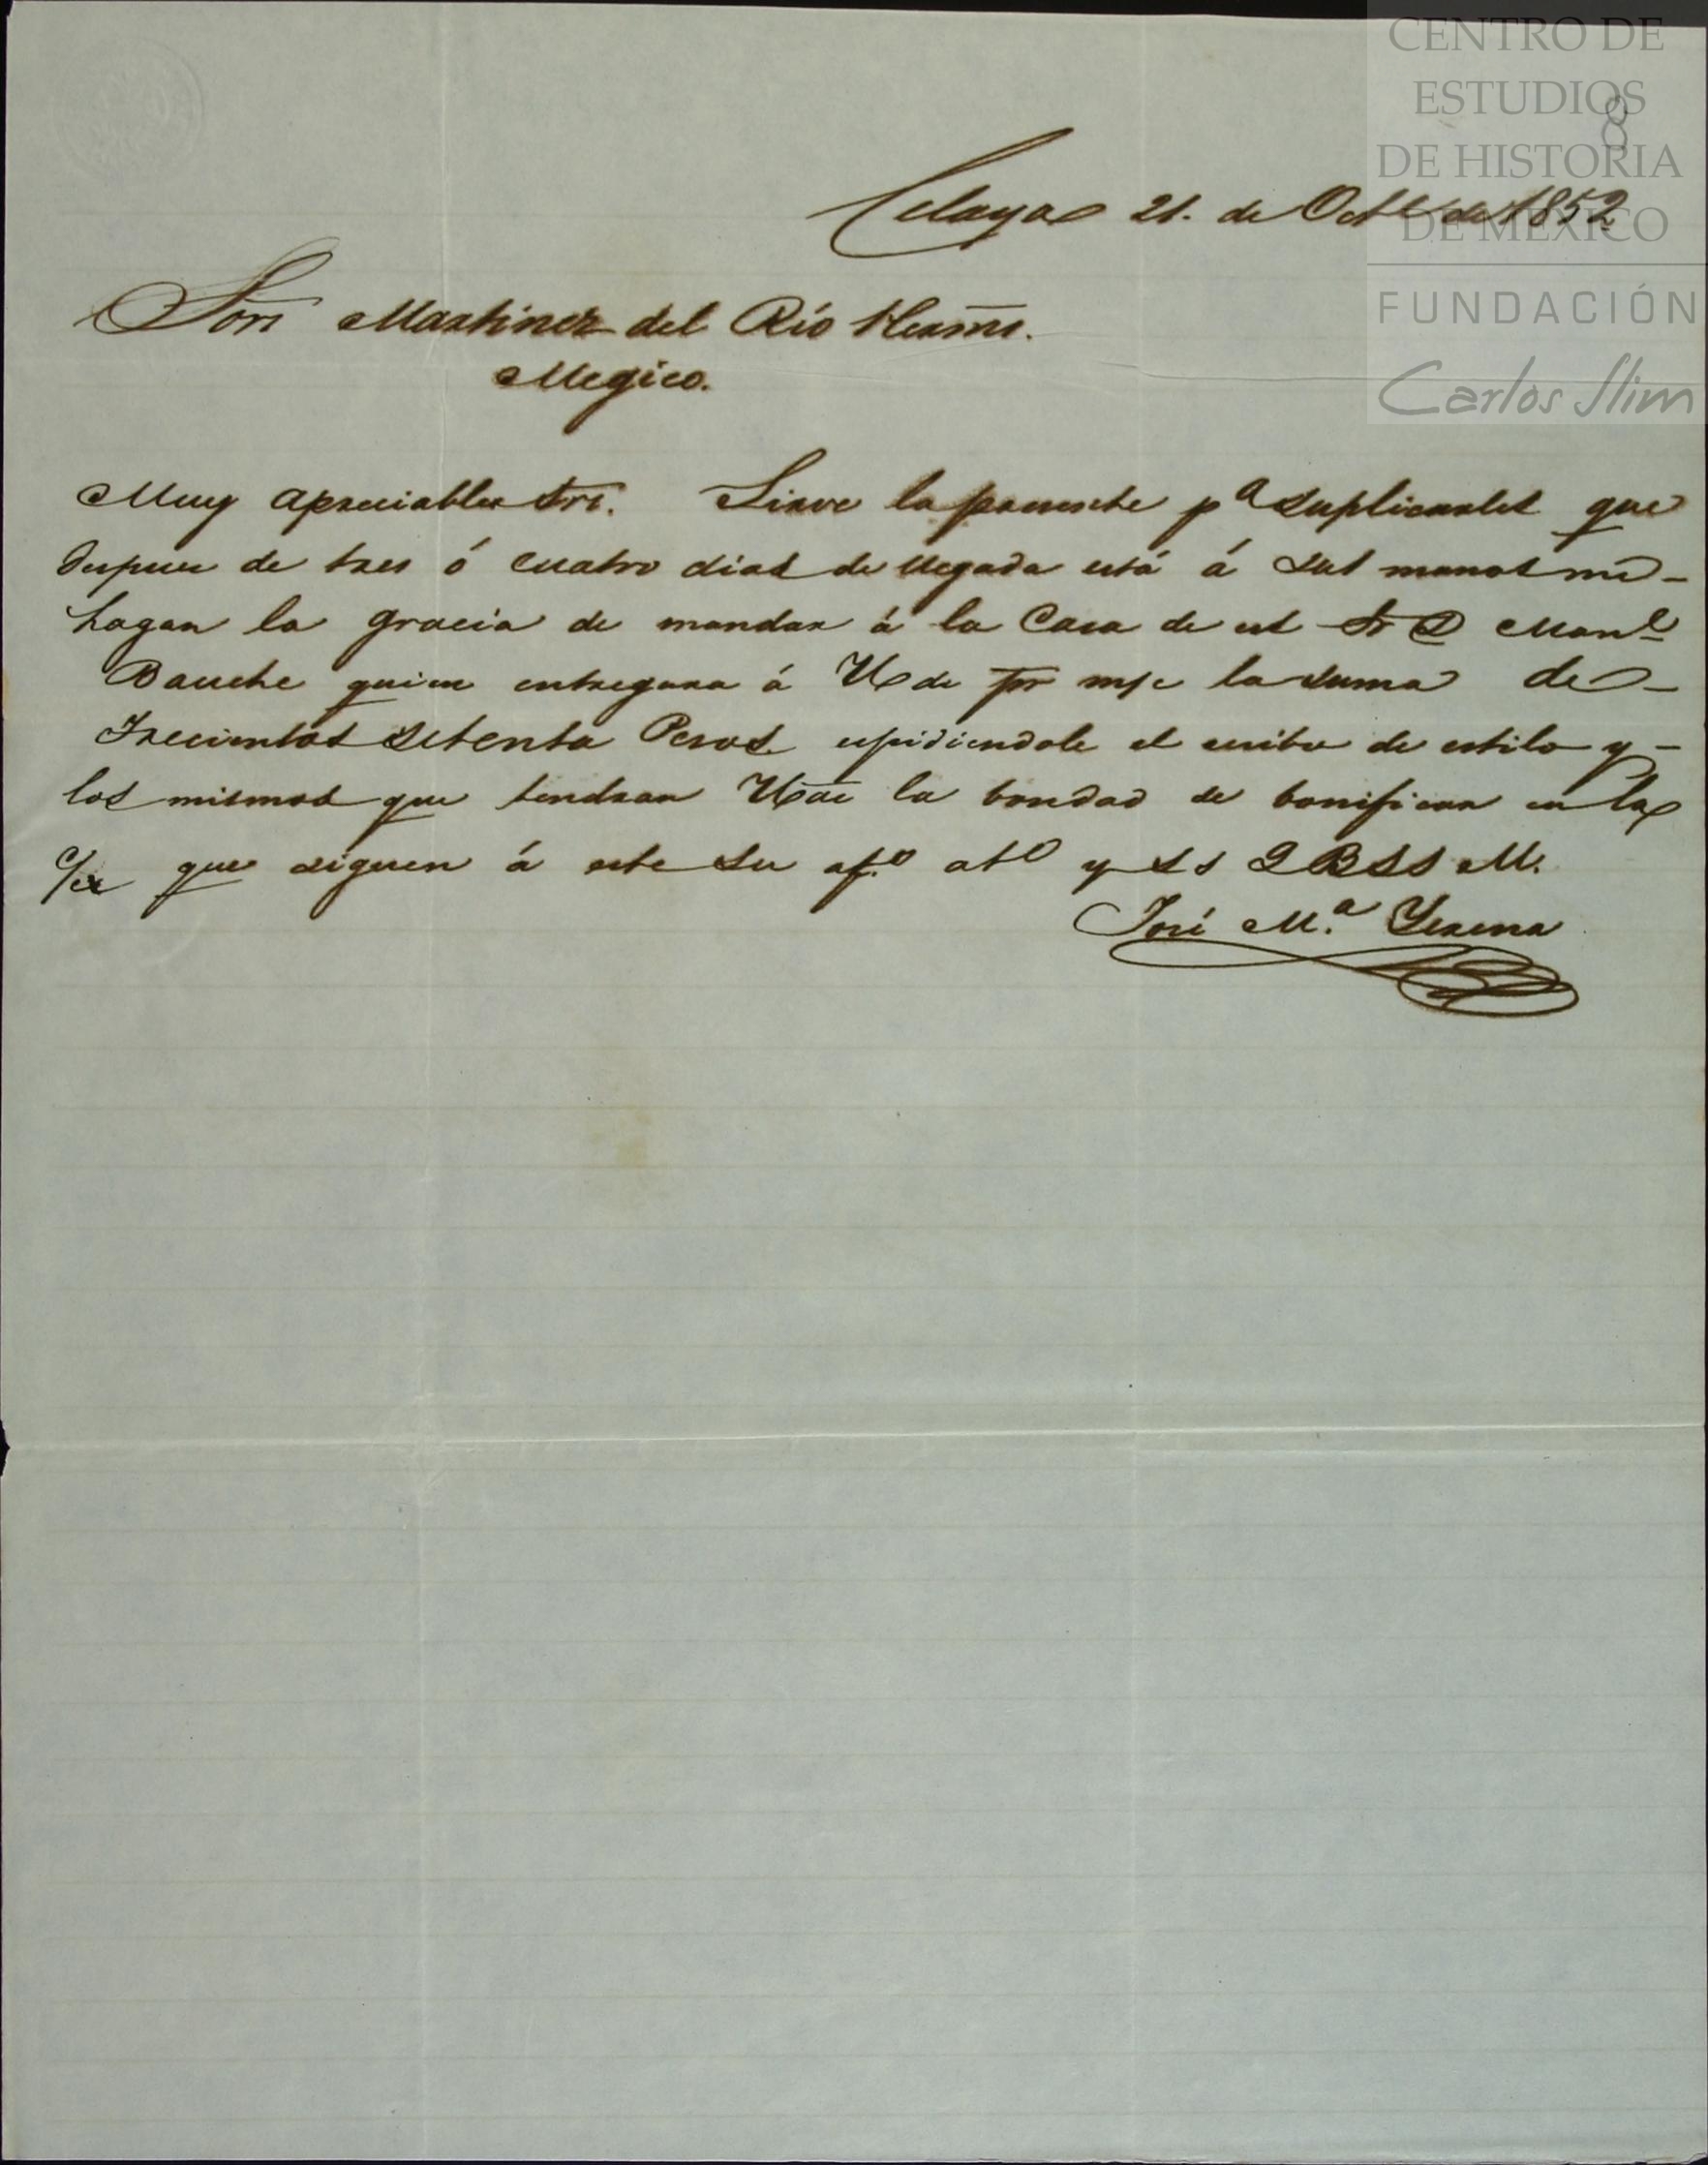 CENTRO DE
ESTUDIOS
DE HISTORIA
DE MÉXICO
FUNDACIÓN
Carlos Slim
8
Celaya 21. de Octe de 1852
Sres Martinez del Río Herms.
Megico.
Muy apreciables Srs. Sirve la presente pa suplicarles que
despues de tres ó cuatro dias de llegada está á sus manos me
hagan la gracia de mandar á la Casa de est Sr D Manl
Bauche quien entregara á Uds pr m/c la suma de
Trecientos setenta Pesos espidiendole el recibo de estilo y
los mismos que tendran Udes la bondad de bonificar en la
c/c que siguen á este su afo ato y S S Q B S S M.
José Ma. Yerena